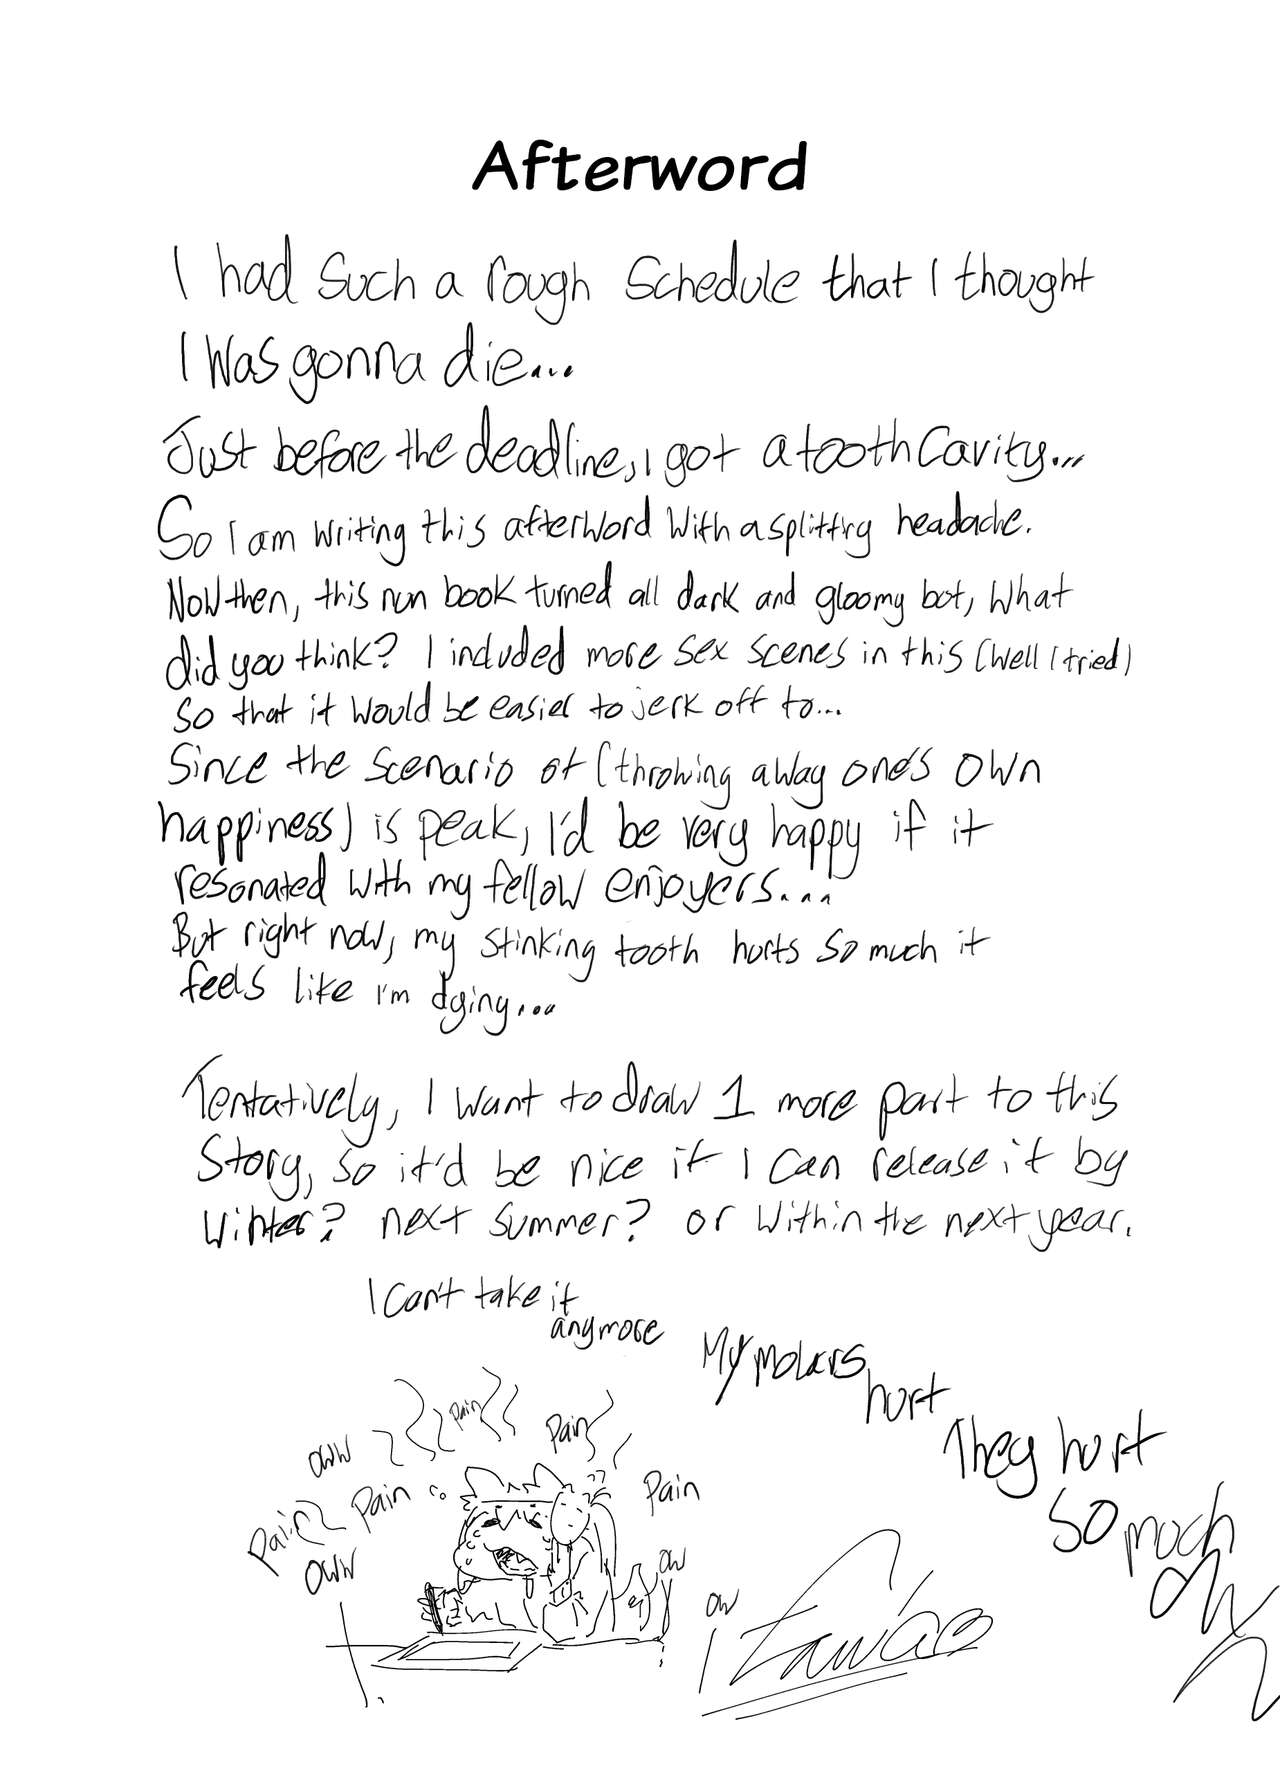 Afterword
I had such a rough schedule that I thought
I was gonna die...
Just before the deadline, I got a tooth cavity...
So I am writing this afterword with a splitting headache.
Now then, this nun book turned all dark and gloomy but, what
did you think? I included more sex scenes in this (well I tried)
so that it would be easier to jerk off to...
Since the scenario of (throwing away one's own
happiness) is peak, I'd be very happy if it
resonated with my fellow enjoyers...
But right now, my stinking tooth hurts so much it
feels like I'm dying...
Tentatively, I want to draw 1 more part to this
story, so it'd be nice if I can release it by
winter? next summer? or within the next year.
I can't take it
anymore
My molars
hurt
They hurt
so much
oww
Pain
Pain
oww
Pain
Pain
Pain
oww
ow
ow